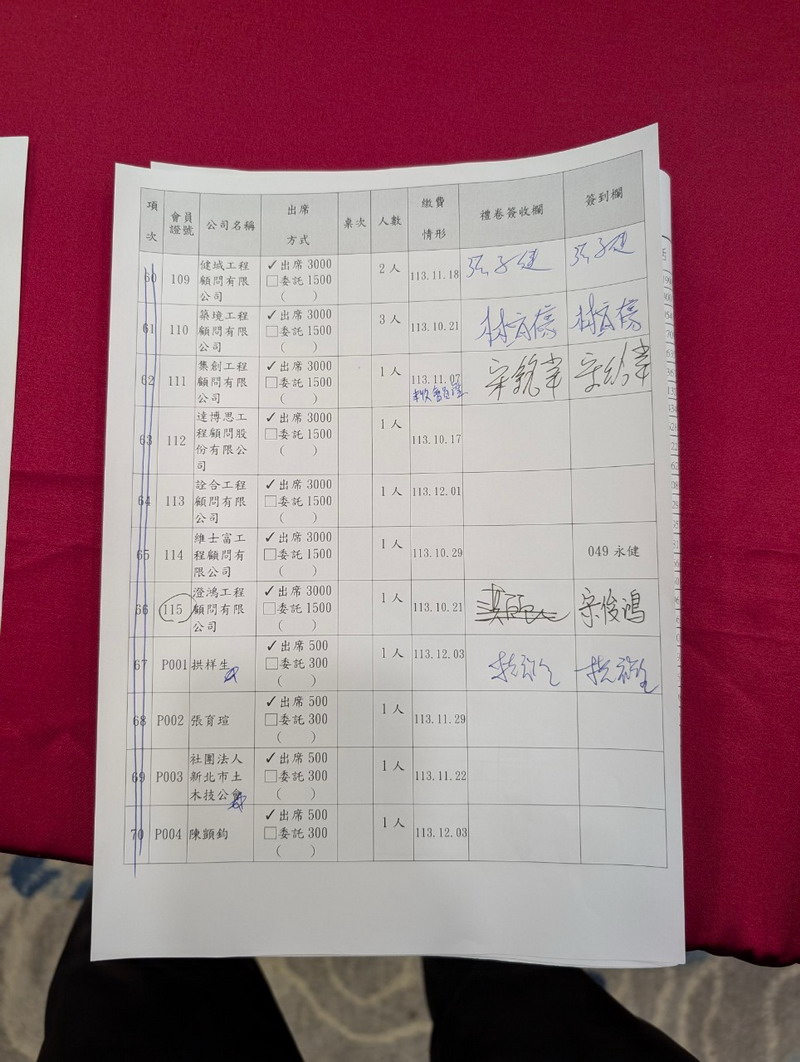 項次 會員證號 公司名稱 出席方式 桌次 人數 繳費情形 禮卷簽收欄 簽到欄
60 109 健城工程 ✓出席 3000 2 人 113.11.18
顧問有限 □委託 1500
公司 ( )
61 110 築境工程 ✓出席 3000 3 人 113.10.21
顧問有限 □委託 1500
公司 ( )
62 111 集創工程 ✓出席 3000 1 人 113.11.07
顧問有限 □委託 1500
公司 ( )
63 112 達博思工 ✓出席 3000 1 人 113.10.17
程顧問股 □委託 1500
份有限公 ( )
司
64 113 詮合工程 ✓出席 3000 1 人 113.12.01
顧問有限 □委託 1500
公司 ( )
65 114 維士富工 ✓出席 3000 1 人 113.10.29 049 永健
程顧問有 □委託 1500
限公司 ( )
66 115 澄鴻工程 ✓出席 3000 1 人 113.10.21 宋俊鴻
顧問有限 □委託 1500
公司 ( )
67 P001 拱祥生 ✓出席 500 1 人 113.12.03
□委託 300
( )
68 P002 張育瑄 ✓出席 500 1 人 113.11.29
□委託 300
( )
69 P003 社團法人 ✓出席 500 1 人 113.11.22
新北市土 □委託 300
木技公會 ( )
70 P004 陳顗鈞 ✓出席 500 1 人 113.12.03
□委託 300
( )